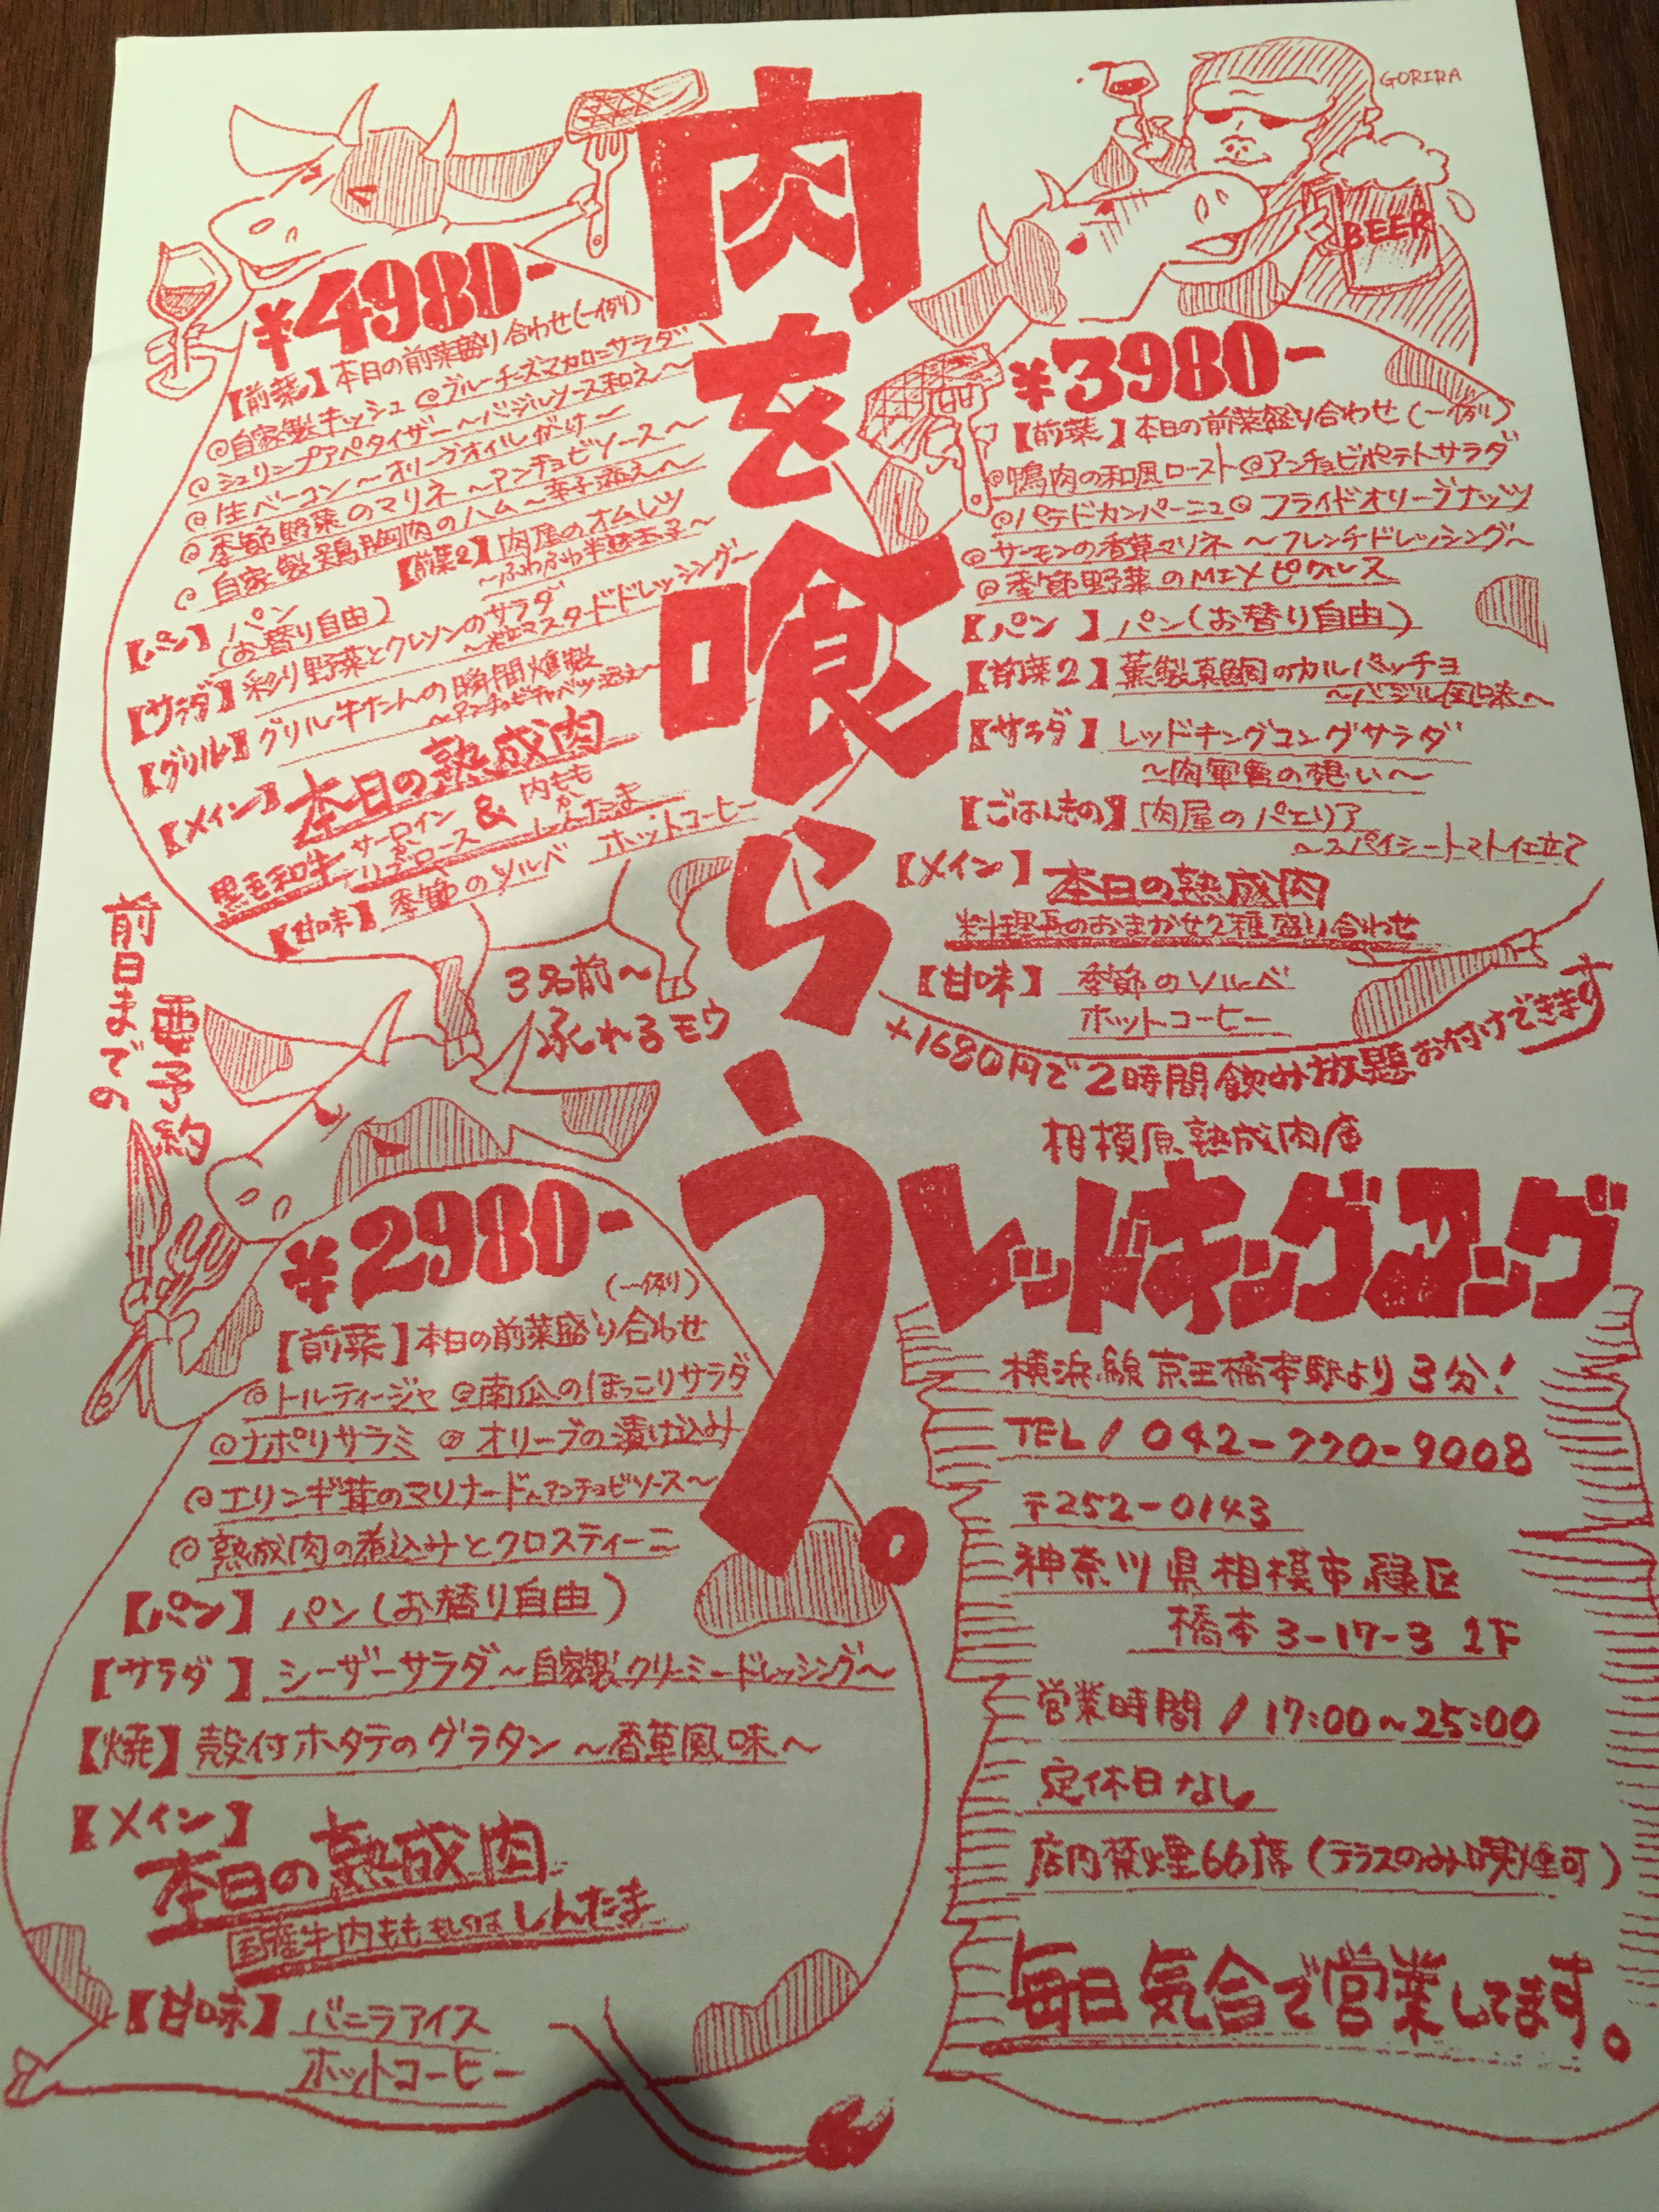 肉を喰らう。
GORIRA
BEER
¥4980-
【前菜】本日の前菜盛り合わせ(一例)
@自家製キッシュ @ブルーチーズマカロニサラダ
@シュリンプアペタイザー〜バジルソース和え〜
@生ベーコン〜オリーブオイルがけ〜
@季節野菜のマリネ〜アンチョビソース〜
@自家製鶏胸肉のハム〜辛子添え〜
【前菜2】肉屋のオムレツ
〜ふわふわ半熟玉子〜
【パン】パン
(お替り自由)
【サラダ】彩り野菜とクレソンのサラダ
〜粒マスタードドレッシング〜
【グリル】グリル牛たんの瞬間燻製
〜アンチョビキャベツ添え〜
【メイン】本日の熟成肉
黒毛和牛 サーロイン
か
リブロース & 内もも
か
しんたま
【甘味】季節のソルベ ホットコーヒー
¥3980-
【前菜】本日の前菜盛り合わせ(一例)
@鴨肉の和風ロースト @アンチョビポテトサラダ
@パテドカンパーニュ @フライドオリーブナッツ
@サーモンの香草マリネ 〜フレンチドレッシング〜
@季節野菜のMIXピクルス
【パン】パン(お替り自由)
【前菜2】薫製真鯛のカルパッチョ
〜バジル風味〜
【サラダ】レッドキングコングサラダ
〜肉軍曹の想い〜
【ごはんもの】肉屋のパエリア
〜スパイシートマト仕立て
【メイン】本日の熟成肉
料理長のおまかせ2種盛り合わせ
【甘味】季節のソルベ
ホットコーヒー
+1680円で2時間飲み放題お付けできます
前日までの
要予約
3名前〜
承れるモウ
¥2980-
(一例)
【前菜】本日の前菜盛り合わせ
@トルティージャ @南瓜のほっこりサラダ
@ナポリサラミ @オリーブの漬け込み
@エリンギ茸のマリナード〜アンチョビソース〜
@熟成肉の煮込みとクロスティーニ
【パン】パン(お替り自由)
【サラダ】シーザーサラダ〜自家製クリーミードレッシング〜
【焼】殻付ホタテのグラタン〜香草風味〜
【メイン】
本日の熟成肉
国産牛内もももしくはしんたま
【甘味】バニラアイス
ホットコーヒー
相模原熟成肉店
レッドキングコング
横浜線京王橋本駅より3分!
TEL/042-770-9008
〒252-0143
神奈川県相模市緑区
橋本3-17-3 1F
営業時間/17:00〜25:00
定休日なし
店内禁煙66席(テラスのみ喫煙可)
毎日気合で営業してます。